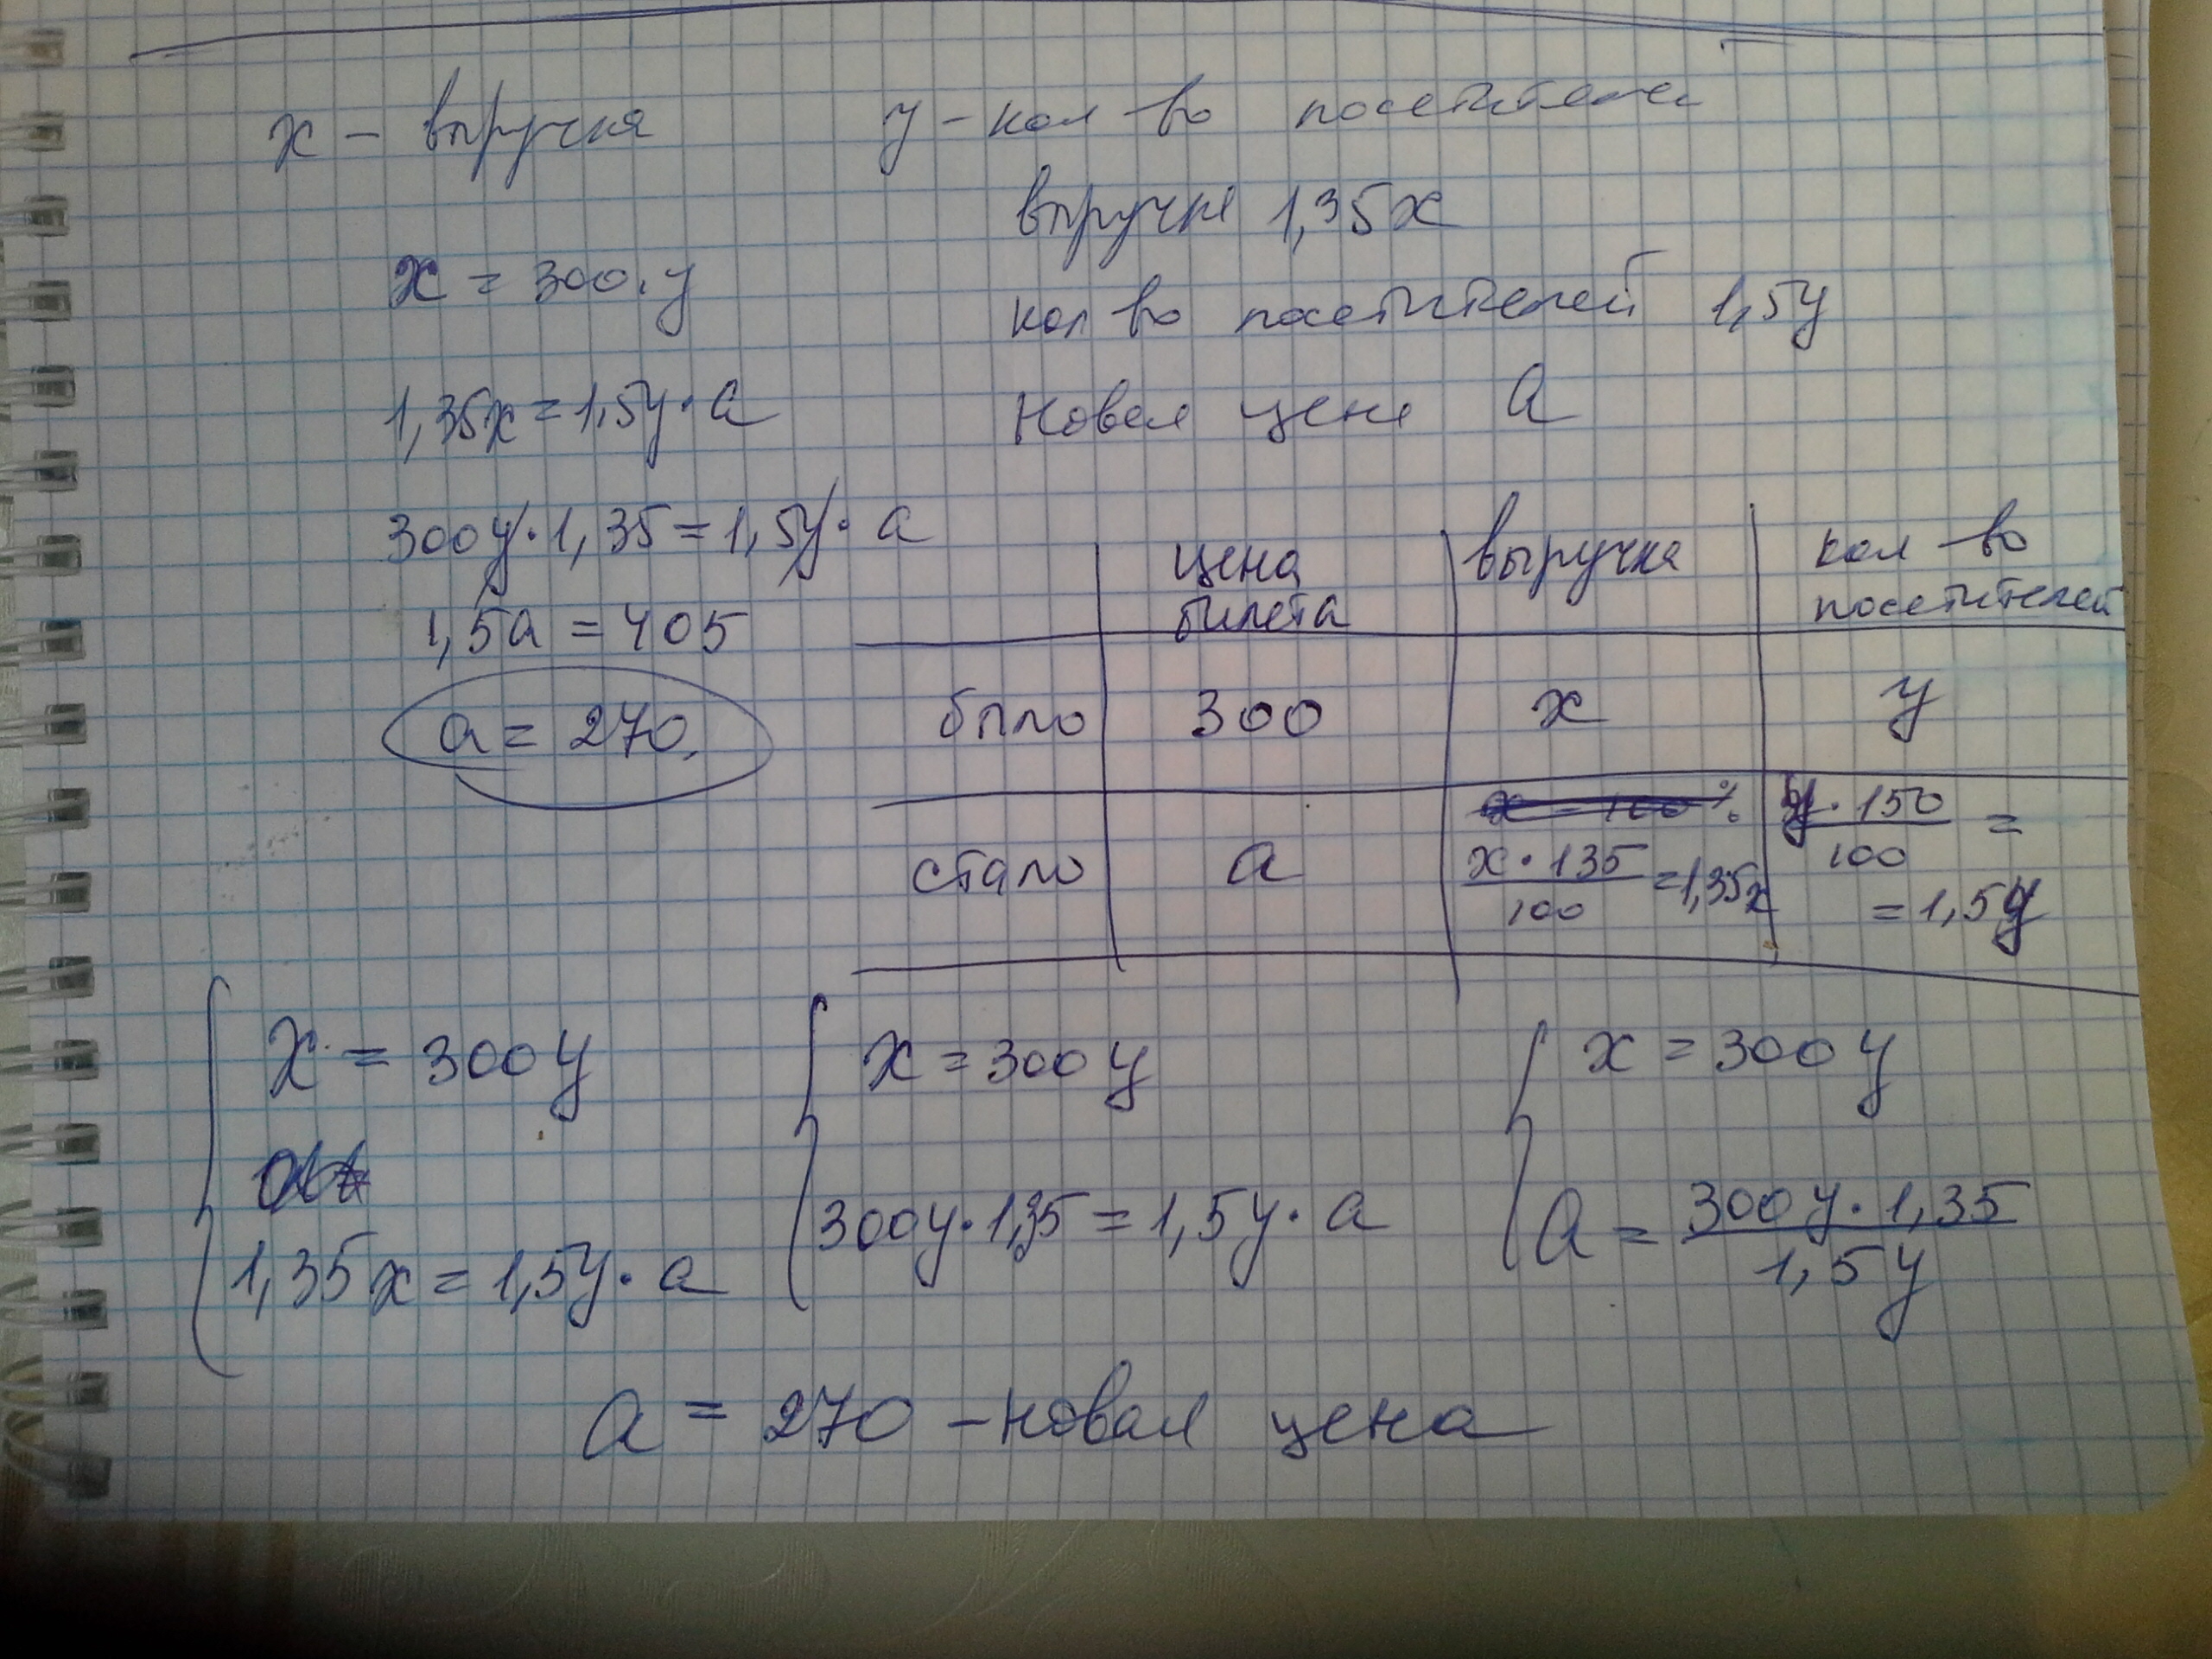 x – выручка
y – кол во посетителей
выручка 1,35x
x = 300·y
кол во посетителей 1,5y
1,35x = 1,5y·a
Новая цена a
300y·1,35 = 1,5y·a
1,5a = 405
a = 270.
цена билета
выручка
кол-во посетителей
было 300 x y
стало a x·135/100 = 1,35x y·150/100 =
= 1,5y
x = 300y
1,35x = 1,5y·a
x = 300y
300y·1,35 = 1,5y·a
x = 300y
a = 300y·1,35/1,5y
a = 270 – новая цена